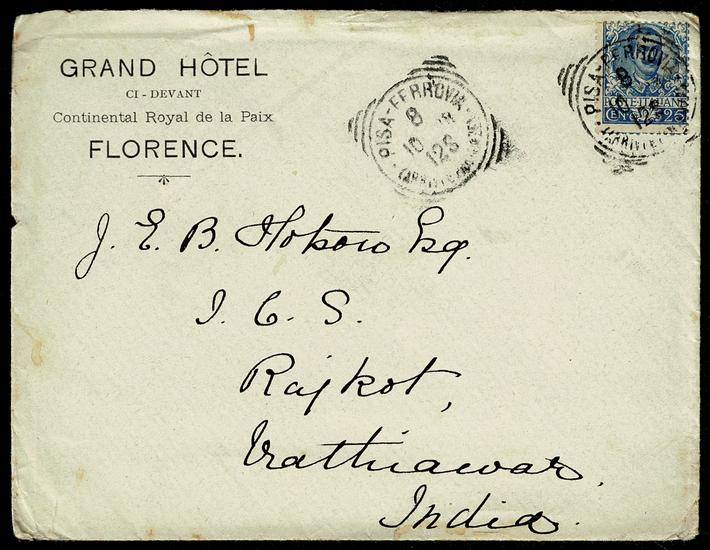 GRAND HÔTEL
CI-DEVANT
Continental Royal de la Paix
FLORENCE.
PISA-FERROVIA
8
10
12S
PISA-FERROVIA
POSTE·ITALIANE
CENT. 25
J. E. B. Hotson Esq.
I. C. S.
Rajkot,
Kathiawar,
India.